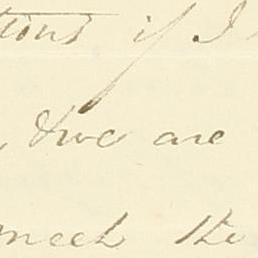 tions if I
, & we are
meet the